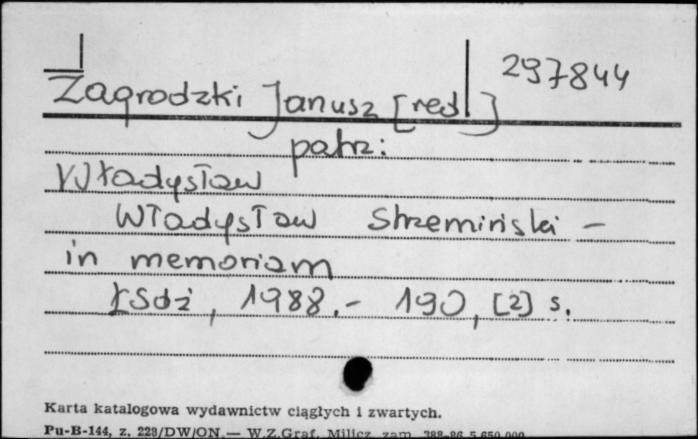 297844
Zagrodzki Janusz [red]
patrz:
Władysław
Władysław Strzemiński –
in memoriam
Łódź, 1988.- 190, [2] s.
Karta katalogowa wydawnictw ciągłych i zwartych.
Pu-B-144, z. 228/DW/ON.— W.Z.Graf. Milicz, zam. 388-86 5.650.000